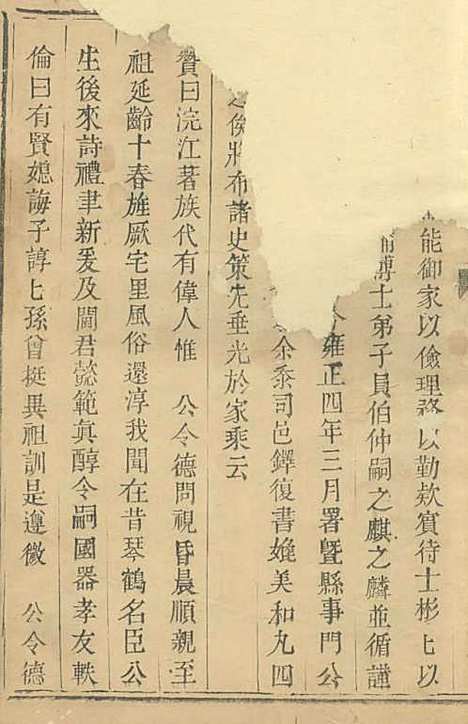 能御家以儉理務以勤欵賓待士彬匕以
博士弟子員伯仲嗣之麒之麟並循謹
雍正四年三月署暨縣事門公
余忝司邑鐸復書媲美和九四
俟將布諸史策先垂光於家乘云
贊曰浣江著族代有偉人惟　公令德問視昏晨順親至
祖延齡十春旌厥宅里風俗還淳我聞在昔琴鶴名臣公
生後來詩禮聿新爰及閫君懿範真醇令嗣國器孝友軼
倫曰有賢媳誨子諄匕孫曾挺異祖訓是遵微　公令德